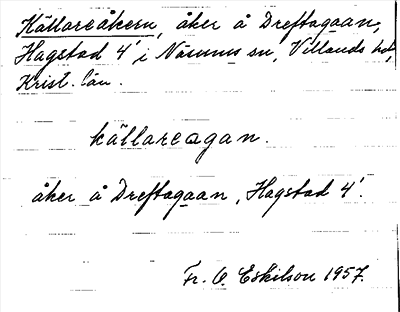 Källareåkern, åker å Dreftagaan,
Hagstad 4' i Näsums sn, Villands hd,
Krist. län.
källareagan.
åker å Dreftagaan, Hagstad 4'.
Fr. O. Eskilson 1957.